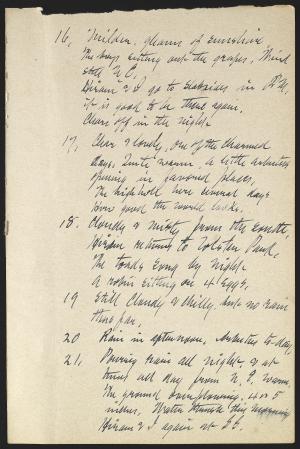 16, Milder, gleams of sunshine.
The boys setting out the grapes. Wind
still N.E.
Hiram & I go to Slabsides in P.M.
it is good to be there again.
Clears off in the night.
17, Clear & lovely, one of the charmed
days. Quite warm. A little arbutus
opening in favored places.
The high-hole here several days
how good the world looks.
18. Cloudy & misty from the south,
Hiram returns to
The toads song by night.
A robin sitting on 4 eggs,
19 Still cloudy & chilly, but no rain
thus far,
20 Rain in afternoon, Arbutus to-day,
21, Pouring rain all night, & at
times all day from N.E. warm.
The ground overflowing, 4 or 5
inches. Water this morning
Hiram & I again at S.S.